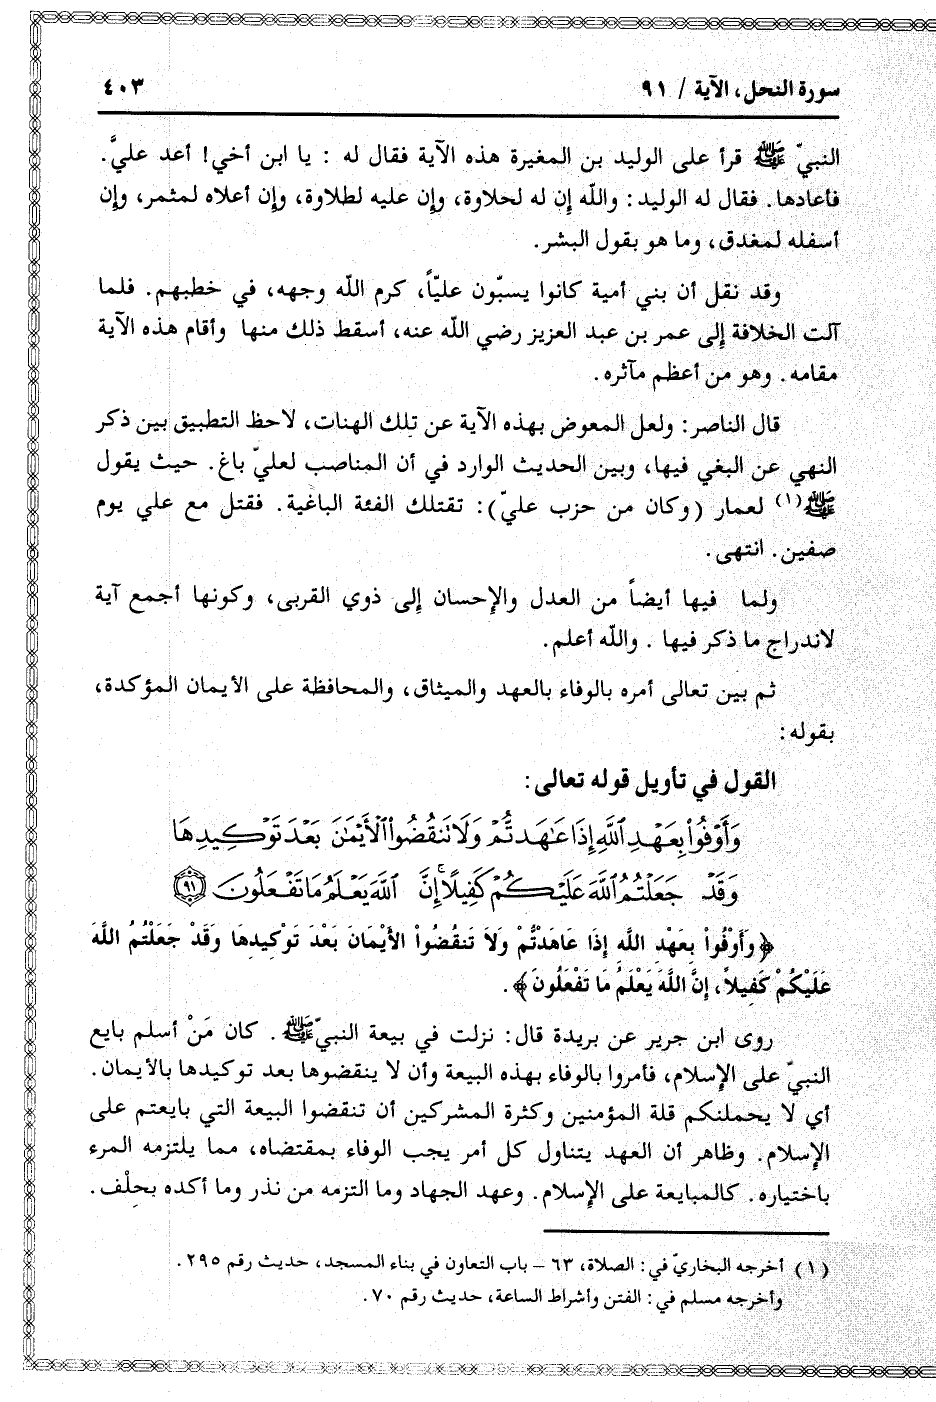 سورة النحل، الآية / ٩١
٤٠٣
النبيّ ﷺ قرأ على الوليد بن المغيرة هذه الآية فقال له : يا ابن أخي! أعد عليَّ.
فأعادها. فقال له الوليد: والله إن له لحلاوة، وإن عليه لطلاوة، وإن أعلاه لمثمر، وإن
أسفله لمغدق، وما هو بقول البشر.
وقد نقل أن بني أمية كانوا يسبّون عليّاً، كرم الله وجهه، في خطبهم. فلما
آلت الخلافة إلى عمر بن عبد العزيز رضي الله عنه، أسقط ذلك منها وأقام هذه الآية
مقامه. وهو من أعظم مآثره.
قال الناصر: ولعل المعوض بهذه الآية عن تلك الهنات، لاحظ التطبيق بين ذكر
النهي عن البغي فيها، وبين الحديث الوارد في أن المناصب لعليّ باغ. حيث يقول
ﷺ(١) لعمار (وكان من حزب عليّ): تقتلك الفئة الباغية. فقتل مع علي يوم
صفين. انتهى.
ولما فيها أيضاً من العدل والإحسان إلى ذوي القربى، وكونها أجمع آية
لاندراج ما ذكر فيها . والله أعلم.
ثم بين تعالى أمره بالوفاء بالعهد والميثاق، والمحافظة على الأيمان المؤكدة،
بقوله:
القول في تأويل قوله تعالى:
وَأَوْفُوا۟ بِعَهْدِ ٱللَّهِ إِذَا عَٰهَدتُّمْ وَلَا تَنقُضُوا۟ ٱلْأَيْمَٰنَ بَعْدَ تَوْكِيدِهَا
وَقَدْ جَعَلْتُمُ ٱللَّهَ عَلَيْكُمْ كَفِيلًا ۚ إِنَّ ٱللَّهَ يَعْلَمُ مَا تَفْعَلُونَ ٩١
﴿وَأَوْفُواْ بِعَهْدِ اللَّهِ إِذَا عَاهَدْتُّمْ وَلَا تَنقُضُواْ الْأَيْمَانَ بَعْدَ تَوْكِيدِهَا وَقَدْ جَعَلْتُمُ اللَّهَ
عَلَيْكُمْ كَفِيلاً، إِنَّ اللَّهَ يَعْلَمُ مَا تَفْعَلُونَ﴾.
روى ابن جرير عن بريدة قال: نزلت في بيعة النبيّ ﷺ. كان مَنْ أسلم بايع
النبيّ على الإسلام، فأمروا بالوفاء بهذه البيعة وأن لا ينقضوها بعد توكيدها بالأيمان.
أي لا يحملنكم قلة المؤمنين وكثرة المشركين أن تنقضوا البيعة التي بايعتم على
الإسلام. وظاهر أن العهد يتناول كل أمر يجب الوفاء بمقتضاه، مما يلتزمه المرء
باختياره. كالمبايعة على الإسلام. وعهد الجهاد وما التزمه من نذر وما أكده بحلْف.
(١) أخرجه البخاريّ في: الصلاة، ٦٣ – باب التعاون في بناء المسجد، حديث رقم ٢٩٥.
وأخرجه مسلم في: الفتن وأشراط الساعة، حديث رقم ٧٠.